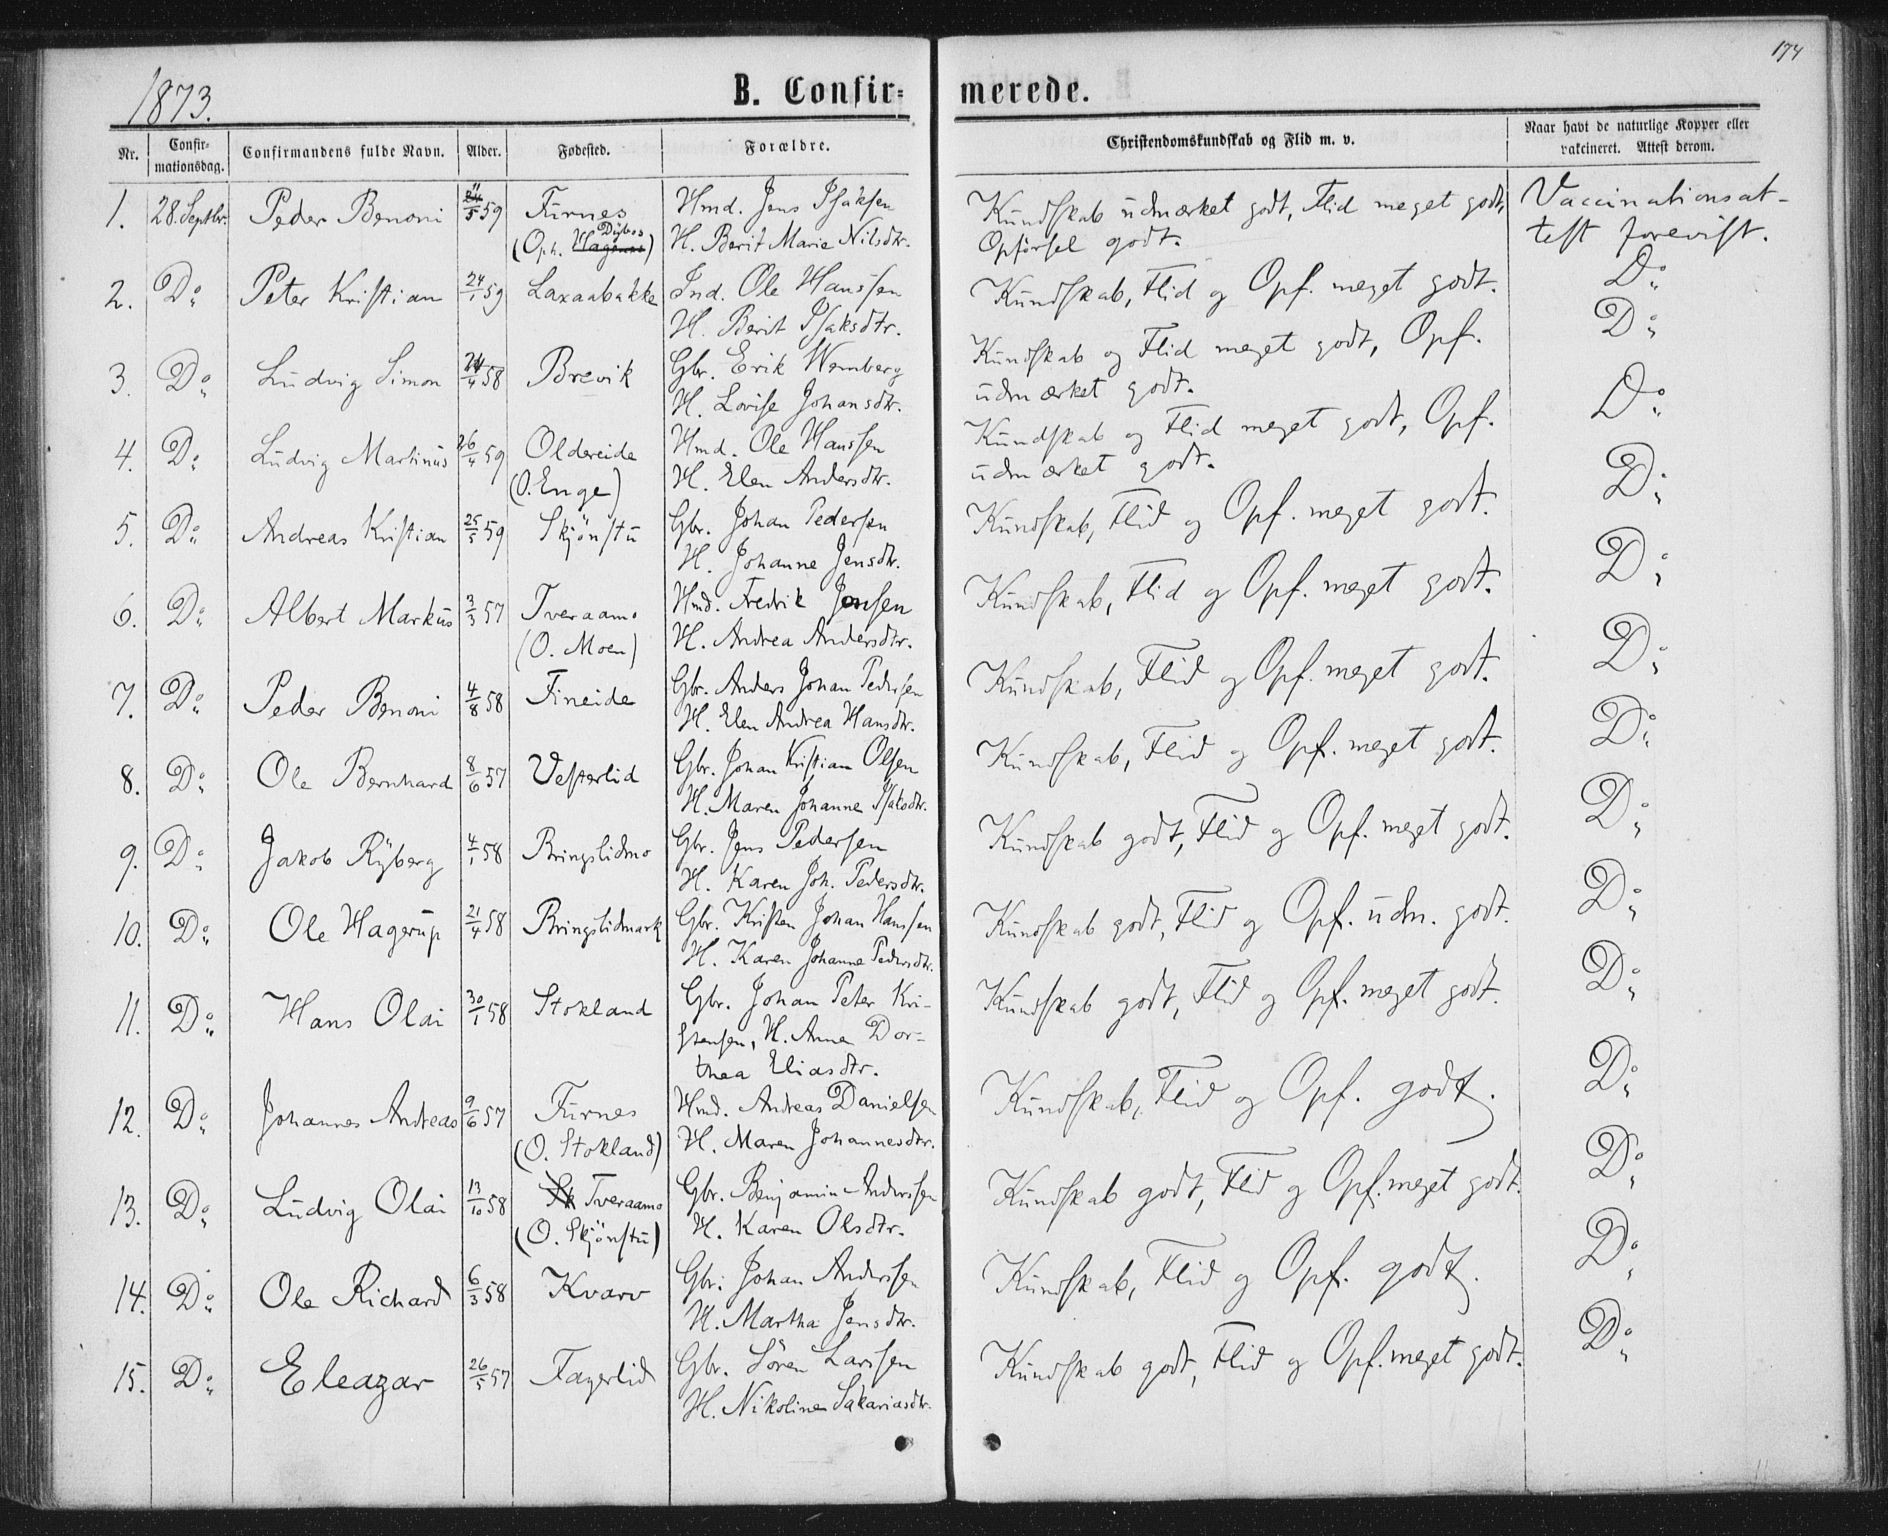 174
1873.
B. Confir=
merede.
Nr.
Confir=
mationsdag.
Confirmandens fulde Navn.
Alder.
Fødested.
Forældre.
Christendomskundskab og Flid m. v.
Naar havt de naturlige Kopper eller
vakcineret. Attest derom.
1. 28. Septbr. Peder Benoni 11/5 59 Furnes Hmd. Jens Isaksen Kundskab udmærket godt, Flid meget godt, Vaccinationsat-
(Oph. Hagenes) H. Berit Marie Nilsdtr. Opförsel godt. test forevist.
2. Do Peter Kristian 24/1 59 Laxaabakke Ind. Ole Hanssen Kundskab, Flid og Opf. meget godt. Do
H. Berit Isaksdtr.
3. Do Ludvig Simon 24/4 58 Brevik Gbr. Erik Wemberg Kundskab og Flid meget godt, Opf. Do
H. Lovise Johansdtr. udmærket godt.
4. Do Ludvig Martinus 26/4 59 Oldereide Hmd. Ole Hanssen Kundskab og Flid meget godt, Opf. Do
(O. Enge) H. Elen Andersdtr. udmærket godt.
5. Do Andreas Kristian 25/5 59 Skjönstu Gbr. Johan Pedersen Kundskab, Flid og Opf. meget godt. Do
H. Johanne Jensdtr.
6. Do Albert Markus 3/3 57 Tveraamo Hmd. Fredrik Jensen Kundskab, Flid og Opf. meget godt. Do
(O. Moen) H. Andrea Andersdtr.
7. Do Peder Benoni 4/8 58 Fineide Gbr. Anders Johan Pedersen Kundskab, Flid og Opf. meget godt. Do
H. Elen Andrea Hansdtr.
8. Do Ole Bernhard 8/6 57 Vesterlid Gbr. Johan Kristian Olsen Kundskab, Flid og Opf. meget godt. Do
H. Maren Johanne Isaksdtr.
9. Do Jakob Ryberg 4/1 58 Bringslidmo Gbr. Jens Pedersen Kundskab godt, Flid og Opf. meget godt. Do
H. Karen Joh. Pedersdtr.
10. Do Ole Hagerup 21/4 58 Bringslidmark Gbr. Kristen Johan Hanssen Kundskab godt, Flid og Opf. udm. godt. Do
H. Karen Johanne Pedersdtr.
11. Do Hans Olai 30/1 58 Stokland Gbr. Johan Peter Kri- Kundskab godt, Flid og Opf. meget godt. Do
stensen, H. Anne Dor-
thea Eliasdtr.
12. Do Johannes Andreas 9/6 57 Furnes Hmd. Andreas Danielsen Kundskab, Flid og Opf. godt. Do
(O. Stokland) H. Maren Johannesdtr.
13. Do Ludvig Olai 13/10 58 Sk Tveraamo Gbr. Benjamin Anderssen Kundskab godt, Flid og Opf. meget godt. Do
(O. Skjönstu) H. Karen Olsdtr.
14. Do Ole Richard 6/3 58 Kvarv Gbr. Johan Anderssen Kundskab, Flid og Opf. godt. Do
H. Martha Jensdtr.
15. Do Eleazar 26/5 57 Fagerlid Gbr. Sören Larssen Kundskab godt, Flid og Opf. meget godt. Do
H. Nikoline Sakariasdtr.